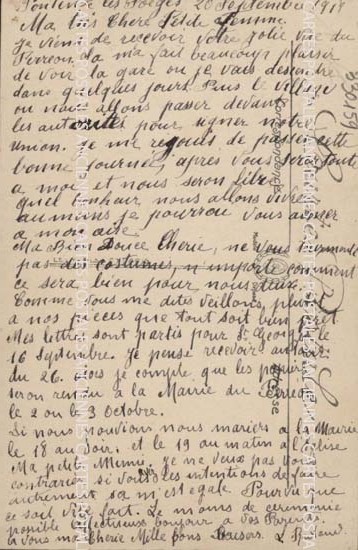 Fontenoy les Vosges 20 Septembre 1918
Ma très Chere Petite Femme
Je viens de recevoir votre jolie vue du
Perreon la m'a fait beaucoup plaisir
de voir la gare ou je vais descendre
dans quelques jours. Puis le village
ou nous allons passer devant
les autorités pour signer notre
union. Je me rejouis de passer cette
bonne journée, après vous serez toute
a moi et nous seron libre
quel bonheur nous allons vivre
au moins je pourrou vous
a mon aise
Ma Bien Douce Cherie, ne vous tourmentez
pas de costumes, n importe comment
ce sera bien pour nous deux.
Comme vous me dites veillons plutot
a nos pièces que tout soit bien prêt
Mes lettres sont partis pour St Georges le
16 Septembre. je pense recevoir autour
du 26. Vois je compte que les
seron rendu a la Mairie du Perreon
le 2 ou le 3 Octobre.
Si nous pouvions nous mariers a la Mairie
le 18 au soir. et le 19 au matin a l'Eglise
Ma petite Mimie je ne veux pas vous
contrarier si vous les intentions de faire
autrement sa m'est egale Pourvu que
ce soit vite fait. Le moins de ceremonie
possible Affectueux bonjour a vos Parents.
a vous ma Cherie Mille bons Baisers.
Correspondance
Adresse